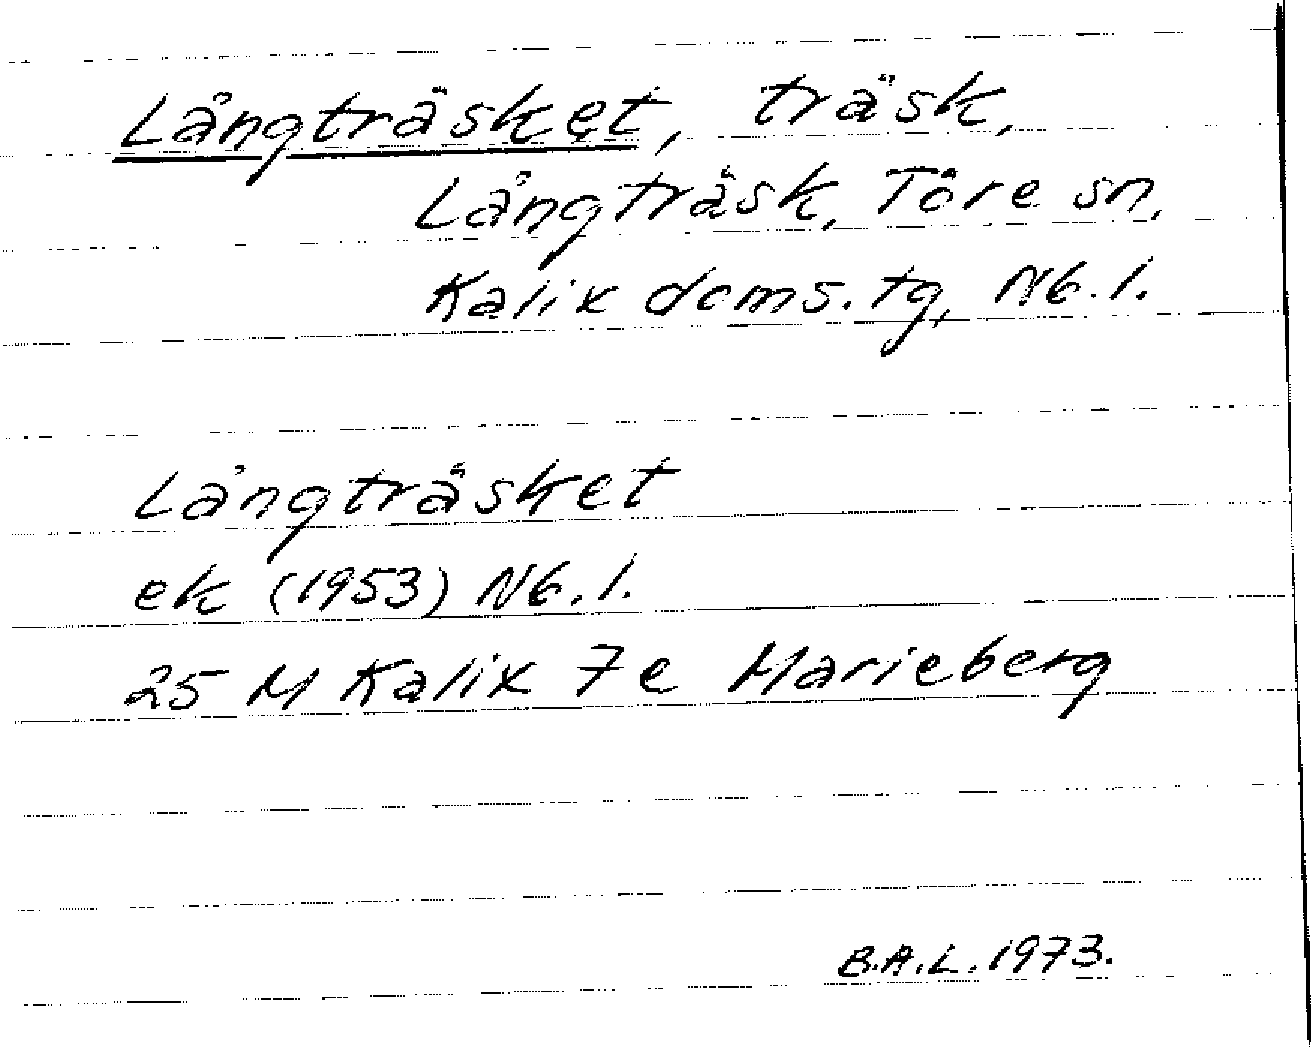 Långträsket, träsk,
Långträsk, Töre sn,
Kalix doms. tg, Nb. l.
Långträsket
ek (1953) Nb. l.
25 M Kalix 7e Marieberg
B.A.L. 1973.